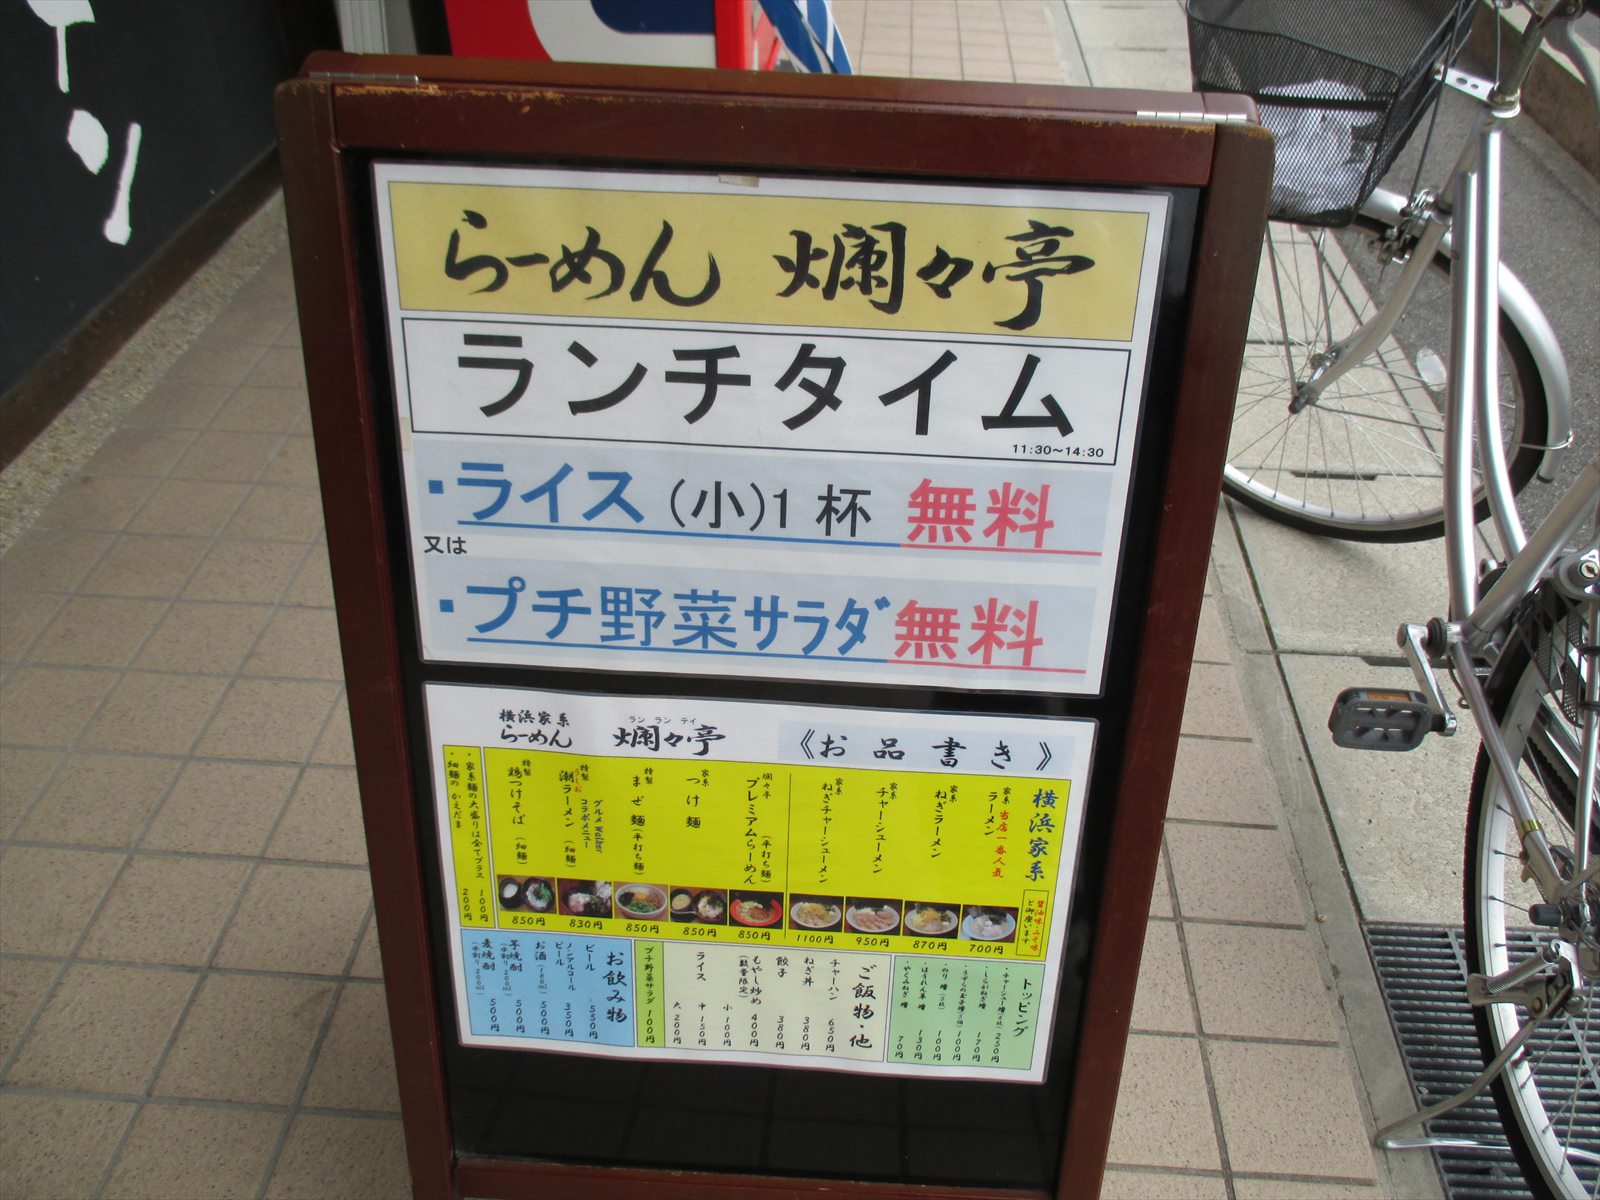 らーめん 爛々亭
ランチタイム
11:30～14:30
・ライス (小)1 杯 無料
又は
・プチ野菜サラダ 無料
横浜家系
らーめん
ラン ラン テイ
爛々亭
《お品書き》
横浜家系
醤油味・みそ味
と御座います
家系 当店一番人気
ラーメン
700円
家系
ねぎラーメン
870円
家系
チャーシューメン
950円
家系
ねぎチャーシューメン
1100円
爛々亭
プレミアムらーめん (平打ち麺)
850円
家系
つけ麺
850円
特製
まぜ麺 (平打ち麺)
850円
グルメWalker
コラボメニュー
特製 うしお
潮ラーメン (細麺)
830円
特製
鶏つけそば (細麺)
850円
・家系麺の大盛りは全てプラス 100円
・細麺のかえだま 200円
トッピング
・チャーシュー増(4枚) 250円
・しらがねぎ増 170円
・うずらの玉子増(5個) 100円
・のり増(5枚) 100円
・ほうれん草増 130円
・やくみねぎ増 70円
ご飯物・他
チャーハン 650円
ねぎ丼 380円
餃子 380円
もやし炒め 400円
(数量限定)
ライス 小 100円
中 150円
大 200円
プチ野菜サラダ 100円
お飲み物
ビール 550円
ノンアルコールビール 350円
お酒(180ml) 500円
芋焼酎 500円
(水割り 200ml)
麦焼酎 500円
(水割り 200ml)